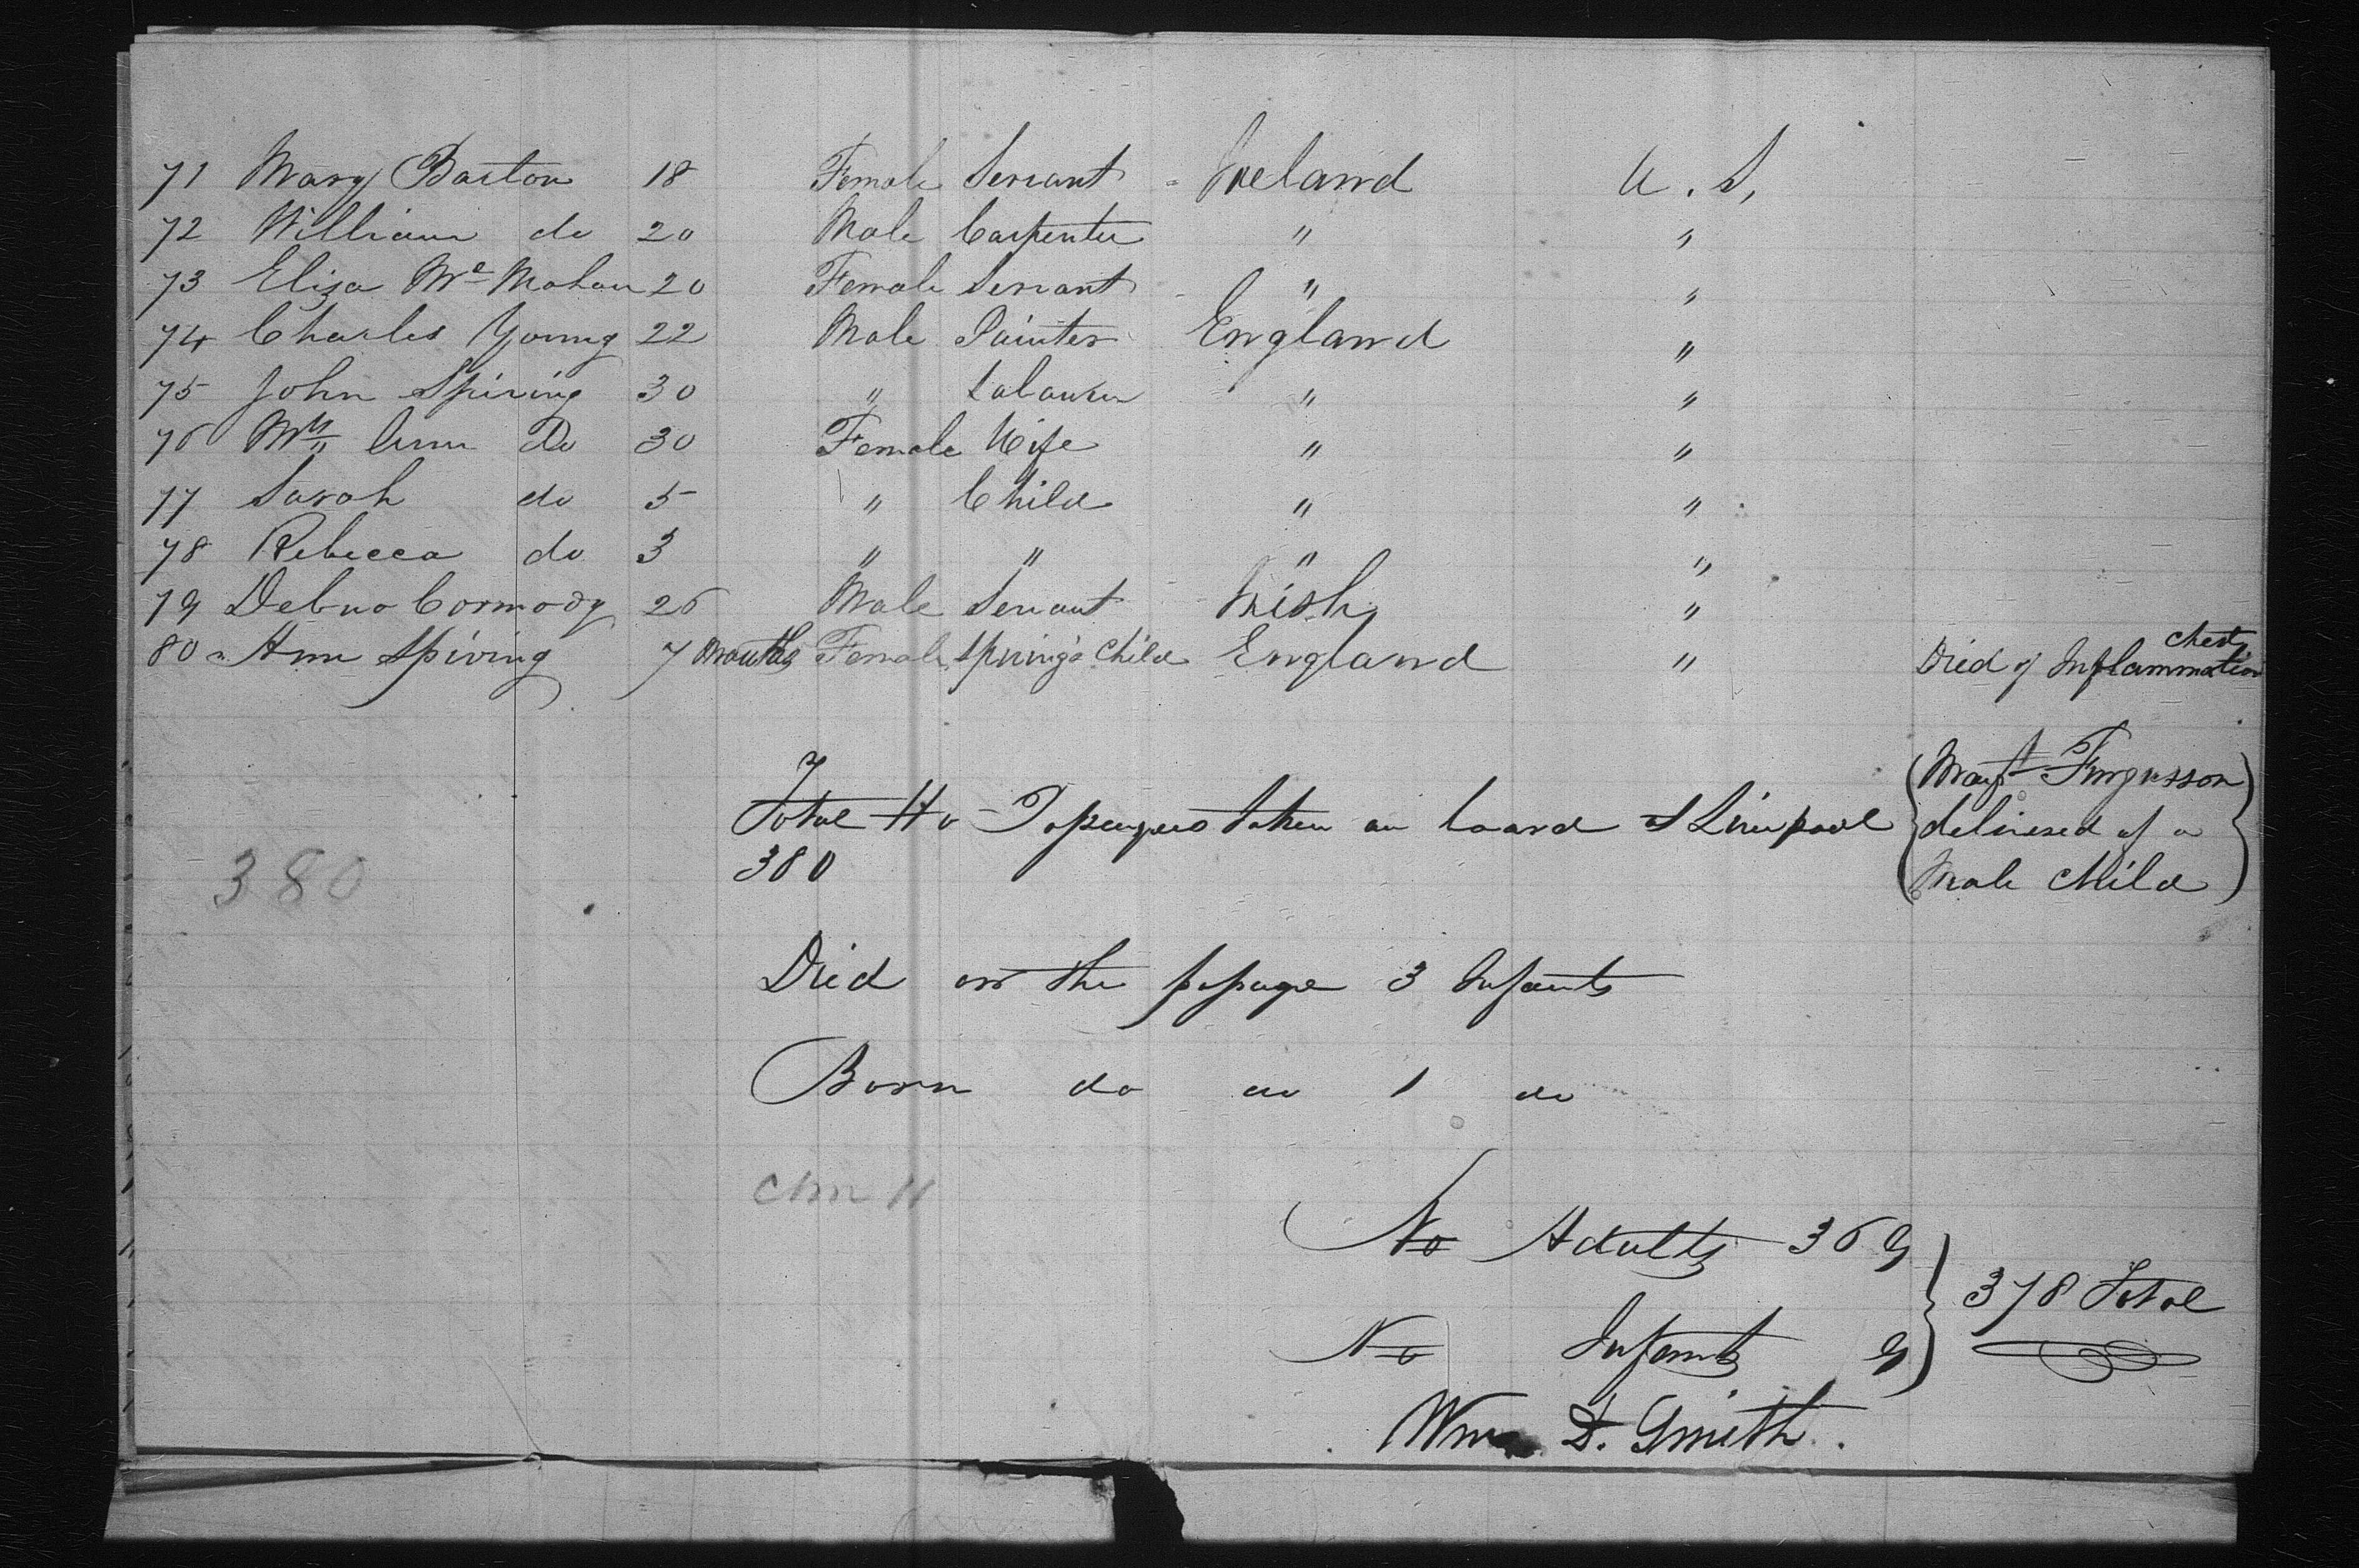 71 Mary Barton 18 Female Servant Ireland U. S,
72 William do 20 Male Carpenter " "
73 Eliza Mc Mahan 20 Female Servant " "
74 Charles Young 22 Male Painter England "
75 John Spiring 30 " Labourer " "
76 Mrs Ann Do 30 Female Wife " "
77 Sarah do 5 " Child " "
78 Rebecca do 3 " " " "
79 Cormody 26 Male Servant Irish "
80 Ann Spiring 7 months Female Spiring's Child England " Died of Inflammation Chest
Total No Passengers taken on board at Liverpool
380
Margt Fergusson
delivered of a
Male Child
380
Died on the passage 3 Infants
Born do do 1 do
No Adults 369
378 Total
No Infants 9
Wm D. Smith.